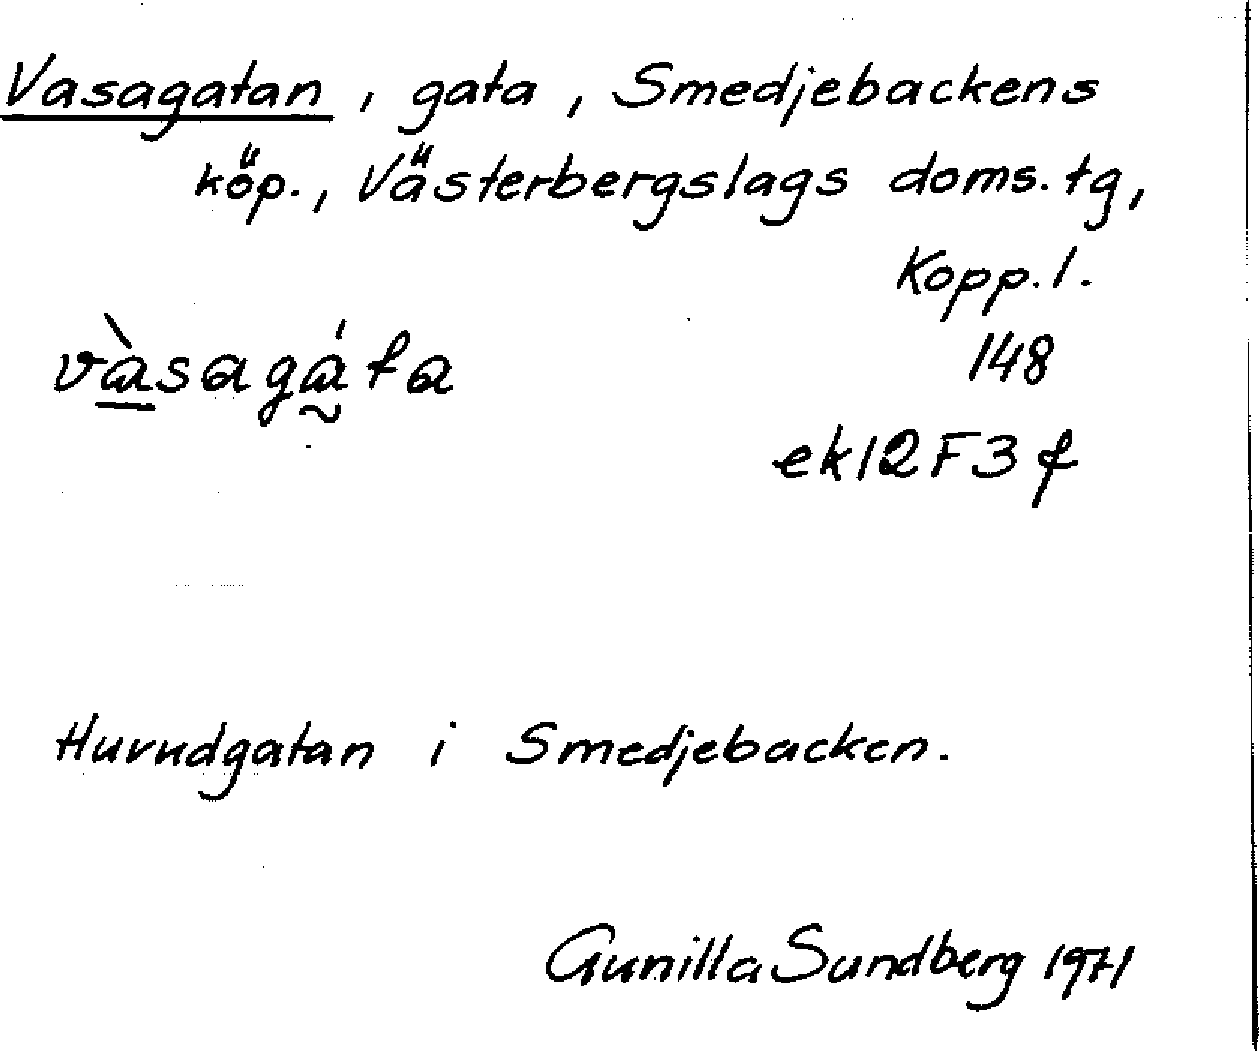 Vasagatan, gata, Smedjebackens
köp., Västerbergslags doms.tg,
Kopp.l.
vàsagáta 148
ek12F3f
Huvudgatan i Smedjebacken.
Gunilla Sundberg 1971